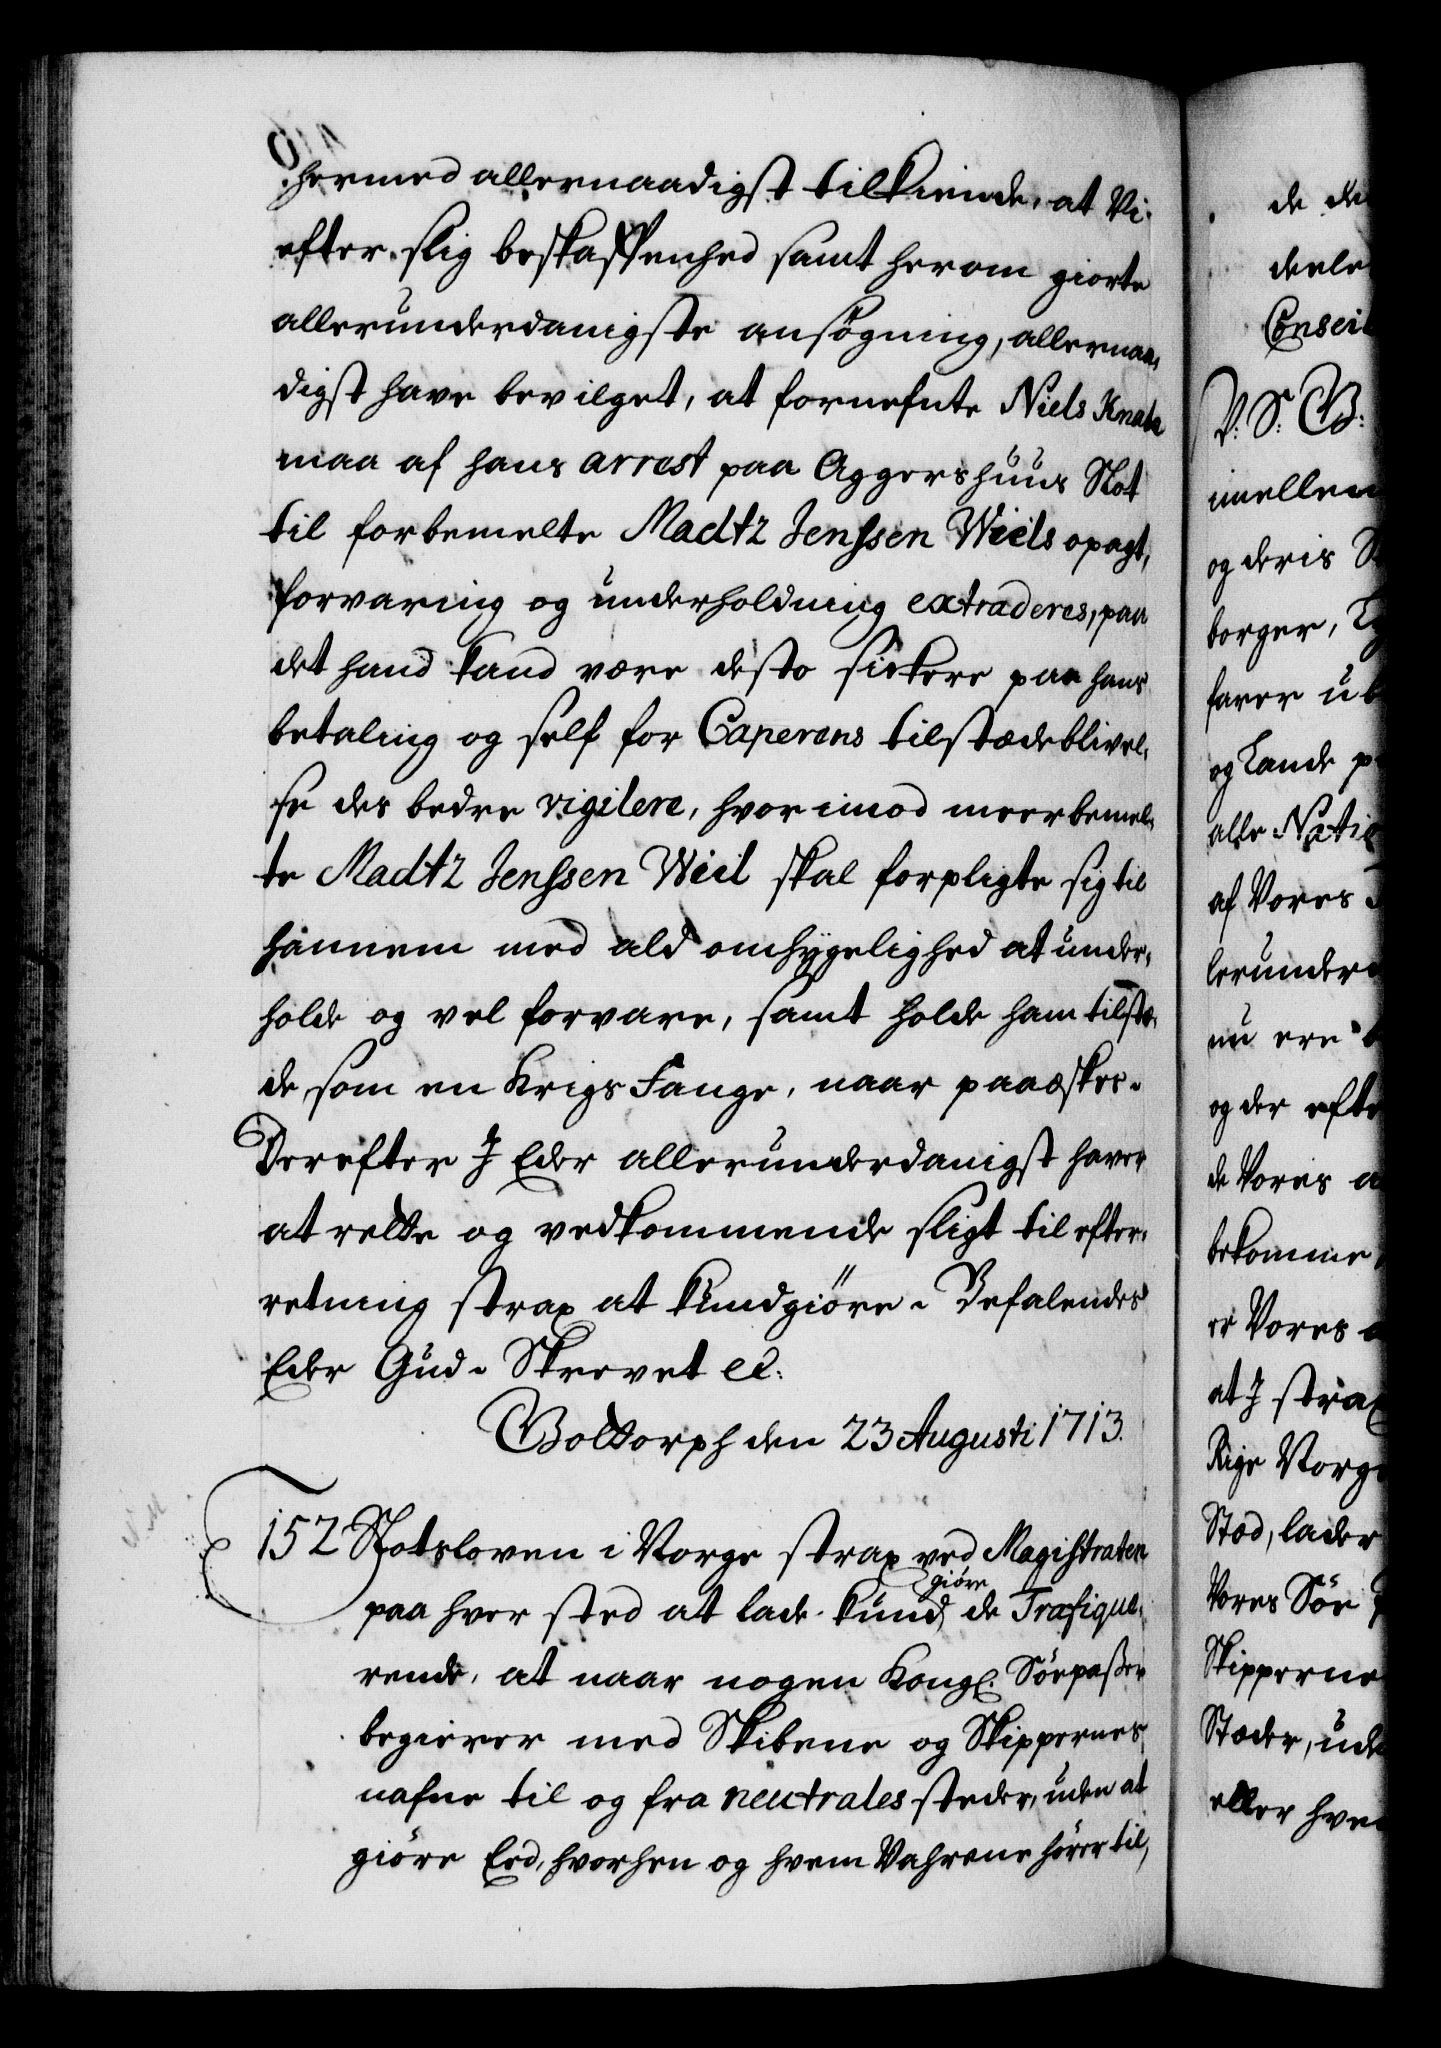 hermed allernaadigst tilkiende, at Vi
efter slig beskaffenhed samt herom giorte
allerunderdanigste ansøgning, allernaa-
digst have bevilget, at fornefnte Niels Knab
maa af hans arrest paa Aggershuus Slot
til forbemelte Madtz Jenssen Wiels opagt,
forvaring og underholdning extraderes, paa
det hand kand være desto sickere paa hans
betaling og self for Caperens tilstædeblivel-
se des bedre vigilere, hvorimod meerbemel-
te Madtz Jenssen Wiel skal forpligte sig til
hannem med ald omhygelighed at under-
holde og vel forvare, samt holde ham tilstæ-
de, som en Krigs Fange, naar paaæskes.
Derefter I Eder allerunderdanigst haver
at rette og vedkommende sligt til efter-
retning strax at kundgiöre. Befalendes
Eder Gud. Skrevet etc:
Gottorph den 23 Augusti 1713.
152 Slotsloven i Norge strax ved Magistraten
paa hver sted at lade kundgiöre de Trafique-
rende, at naar nogen Kongl. Söepasser
begierer med Skibene og Skippernes
nafne til og fra neutrales steder, uden at
giöre Eed, hvorhen og hvem Vahrene hörer til,
de de
deele
Conseil
V: S: G:
imellem
og deris
borger,
farer
og Lande
alle Natio
af Vores
lerunder
nu ere
og der efte
de Voris
bekomme
er Vores
at I strax
Rige Norge
Stæd, lader
Vores Söe
Skipperne
Stæder, ude
eller hve